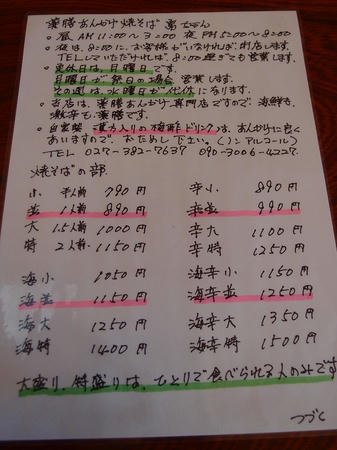 薬膳あんかけ焼そば
○ 昼 AM 11:00〜3:00 夜 PM 5:00〜8:00
○ 夜は、8:00に、お客様がいなければ、閉店します。
TELしていただければ、8:00過ぎても営業します。
○ 定休日は、月曜日です。
月曜日が祭日の場合、営業します。
その週は、水曜日が代休になります。
○ 当店は、薬膳あんかけ専門店ですので、海鮮も、
激辛も、薬膳です。
○ 自家製 漢方入りの梅酢ドリンクは、あんかけに良く
あいますので、おためし下さい。(ノンアルコール)
TEL 027-382-7637 090-3006-4227.
焼そばの部
小 半人前 790円 辛小 890円
並 1人前 890円 辛並 990円
大 1.5人前 1000円 辛大 1100円
特 2人前 1150円 辛特 1250円
海小 1050円 海辛小 1150円
海並 1150円 海辛並 1250円
海大 1250円 海辛大 1350円
海特 1400円 海辛特 1500円
大盛り、特盛りは、ひとりで食べられる人のみです
つづく